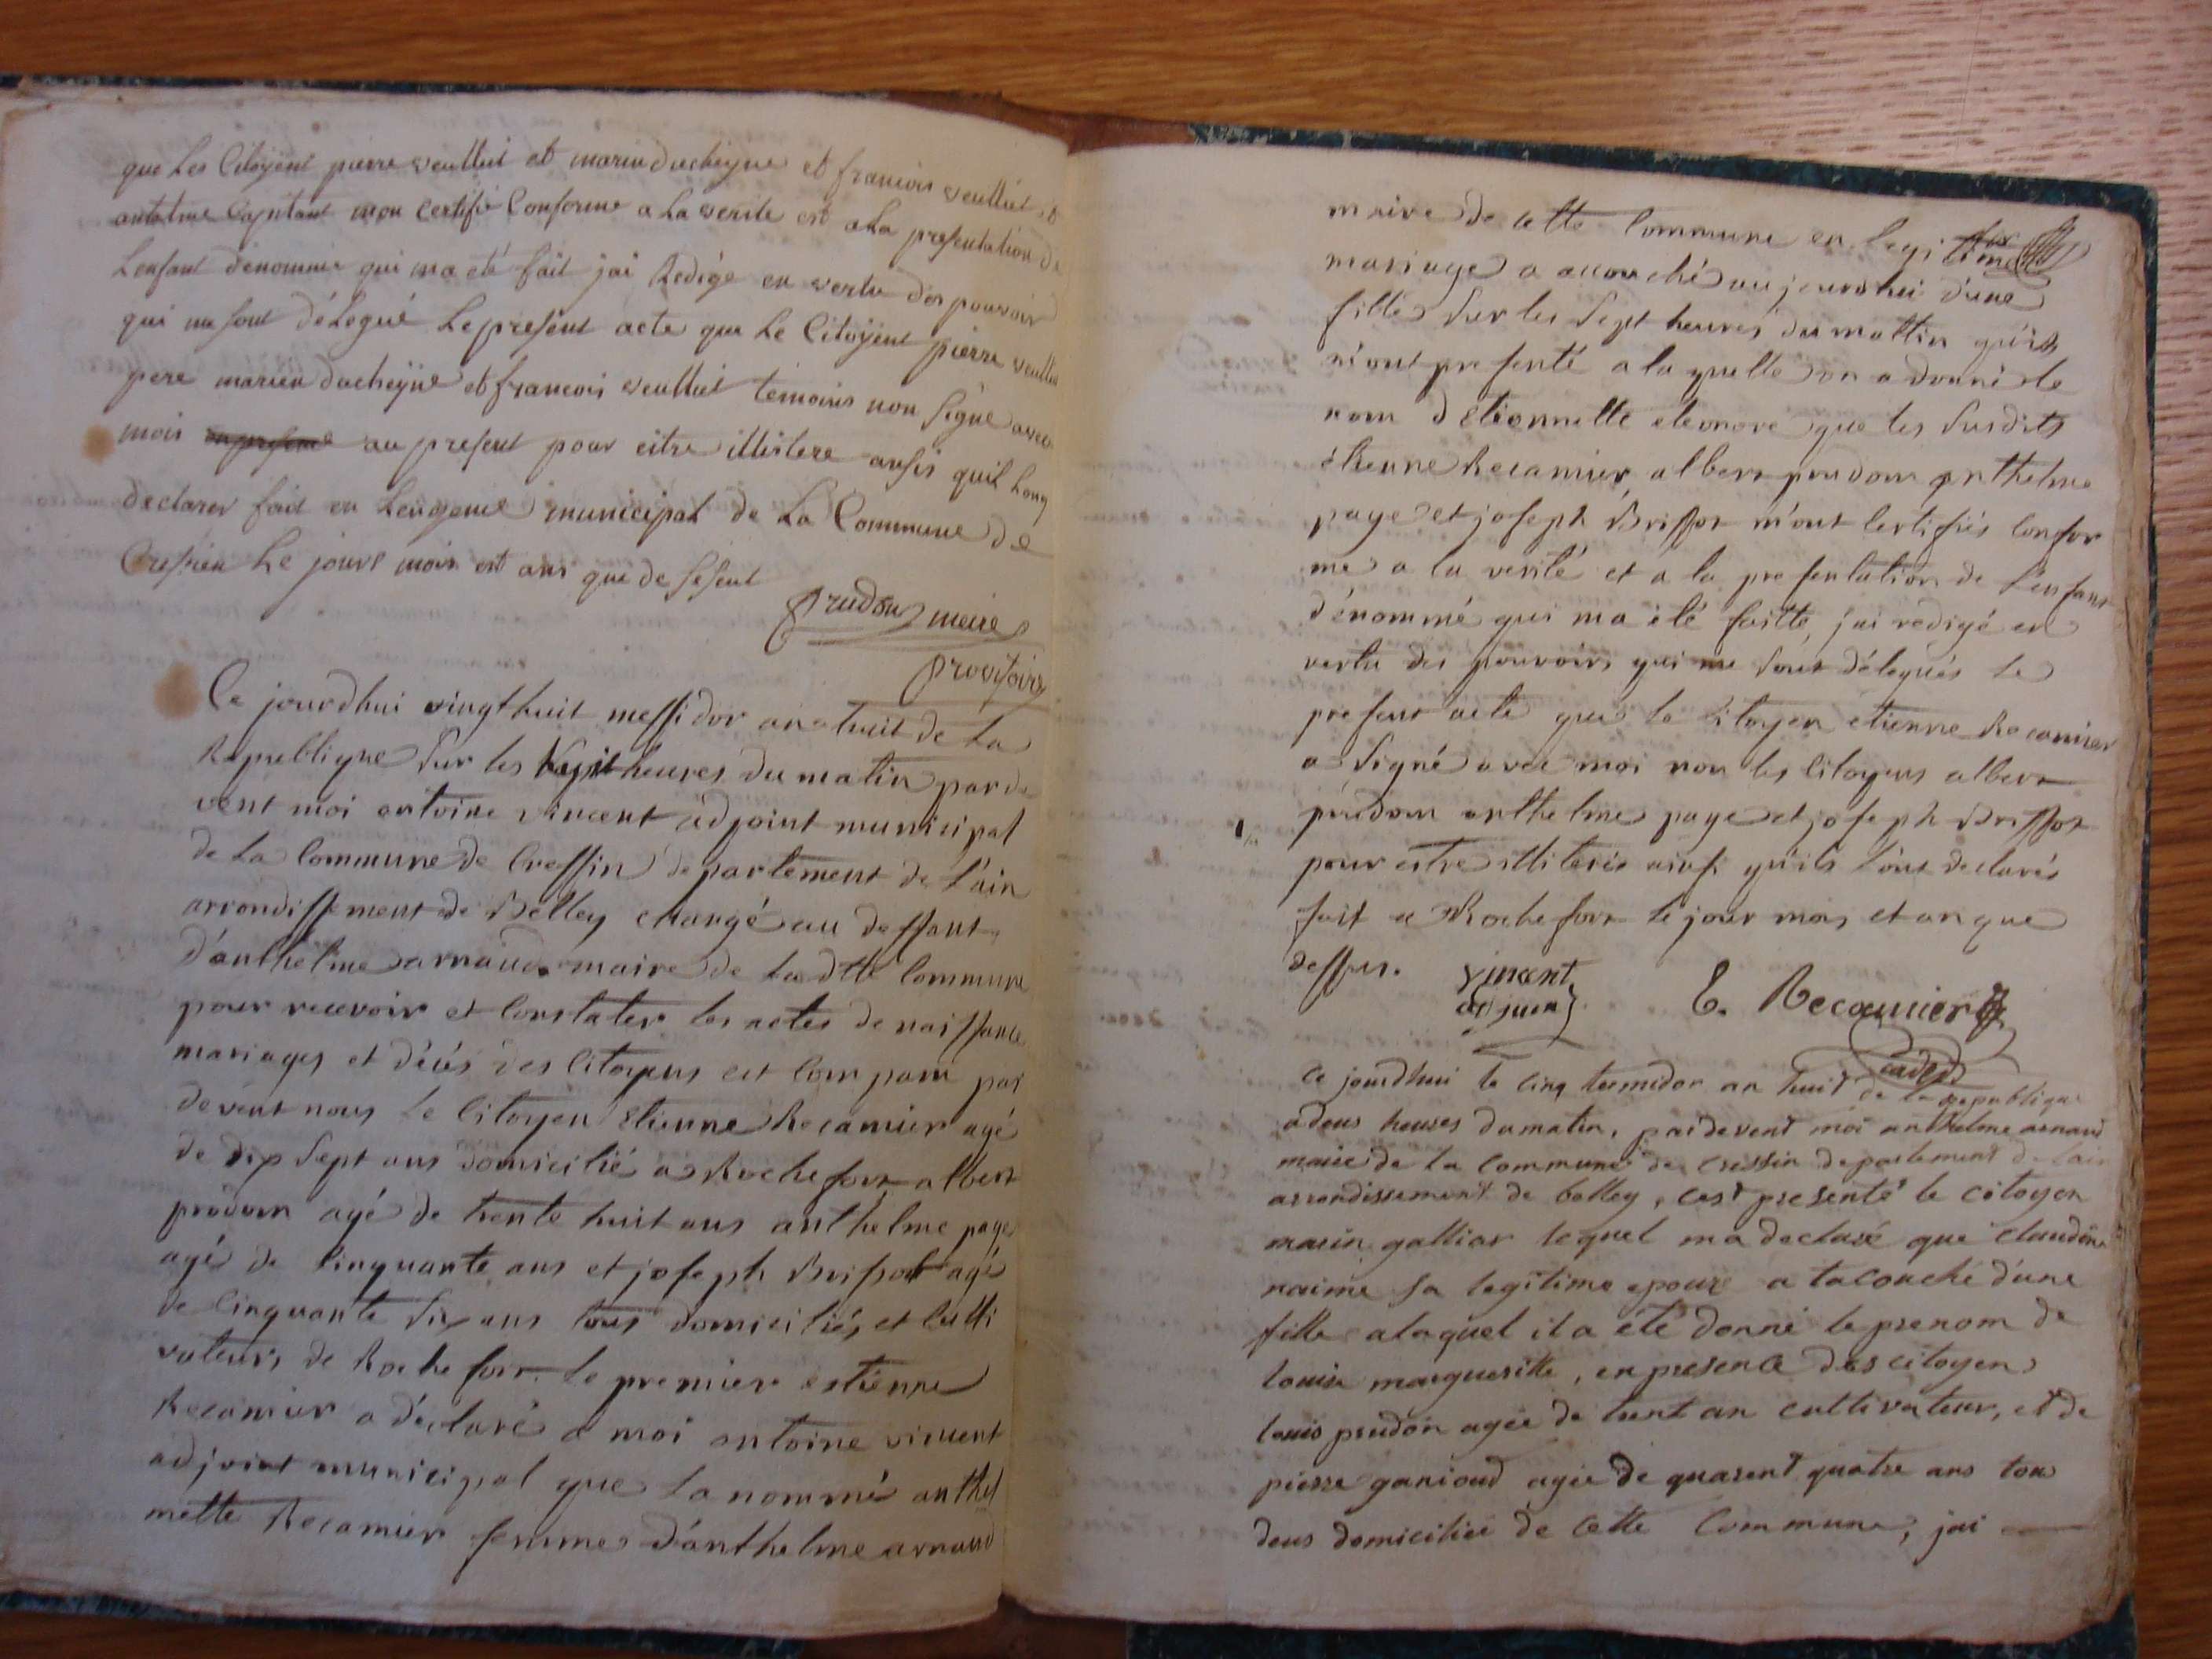 que Les Citoÿent pierre veuillet et marieu ducheÿne et francois veuillet et
antelme Capitant mon certifié Conforme a La verité est a La presentation de
L'enfant dénommé qui ma eté fait jai Redigé en vertu des pouvoir
qui me sont délegué Le present acte que Le Citoÿent pierre veuillet
pere marieu ducheÿne et francois veuillet temoins non signé avec
mois au present pour eitre illistere ansis quil Long
declarer fait en Lengenie municipal de La Commune de
Cresieu Le jours mois est ans que desesent
prudon meire
provisoire
Ce jourdhui vingt huit messidor an huit de La
Republique sur les sept heures du matin parde
vent moi antoine vincent adjoint municipal
de La Commune de Cressin departement de L'ain
arrondissement de Belley chargé au deffaut
d'anthelme arnaud maire de La dtte Commune
pour recevoir et Constater les actes de naissance
mariages et décés des Citoyens est Comparu par
devent nous Le Citoyen Etienne Recamier agé
de dix sept ans domicilié a Rochefort albert
prudom agé de trente huit ans anthelme page
agé de Cinquante ans et joseph Brissot agé
de Cinquante six ans tous domiciliés et Culti
vateurs de Rochefort. Le premier estienne
Recamier a déclaré a moi antoine vincent
adjoint municipal que La nommé anthel
mette Recamier femme d'anthelme arnaud
maire de cette Commune en legitime
mariage a accouché aujourdhui d'une
fille sur les sept heures du mattin qu'ils
m'ont presenté a la quelle on a donné le
nom d'etiennette eleonore que les susdits
étienne Recamier albert prudom anthelme
page et joseph Brissot m'ont Certifiés Confor
me a la verité et a la presentation de l'enfant
dénommé qui ma été faitte, jai redigé en
vertu des pouvoirs qui me sont délegués le
present acte que le Citoyen etienne Recamier
a signé avec moi non les Citoyens albert
prudom anthelme page et joseph Brissot
pour estre illiterés ainsi qu'ils l'ont declarés
fait a Rochefort le jour mois et an que
dessus. vincent
adjuen E. Recamier
cadet
Ce jourdhui le cinq termidor an huit de la republique
a deus heures du matin, pardevent moi anthelme arnaud
maire de la commune de cressin departement de lain
arrondissement de belley, cest presenté le citoyen
marin galliar lequel ma declaré que claudine
naime sa legitime epouse a tacouché d'une
fille alaquel il a eté donné le prenom de
louise margueritte, en presence des citoyen
louis prudon agée de trent an cultivateur, et de
pierre ganioud agée de quarent quatre ans tou
deus domiciliee de cette Commune, jai